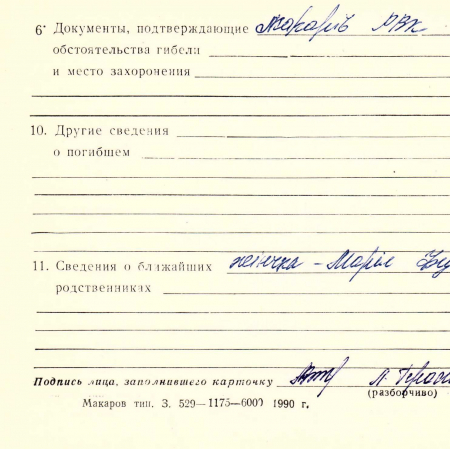 6· Документы, подтверждающие Макарів РВК
обстоятельства гибели
и место захоронения
10. Другие сведения
о погибшем
11. Сведения о ближайших жінка – Марія
родственниках
Подпись лица, заполнившего карточку
(разборчиво)
Макаров тип. З. 529—1175—6000 1990 г.